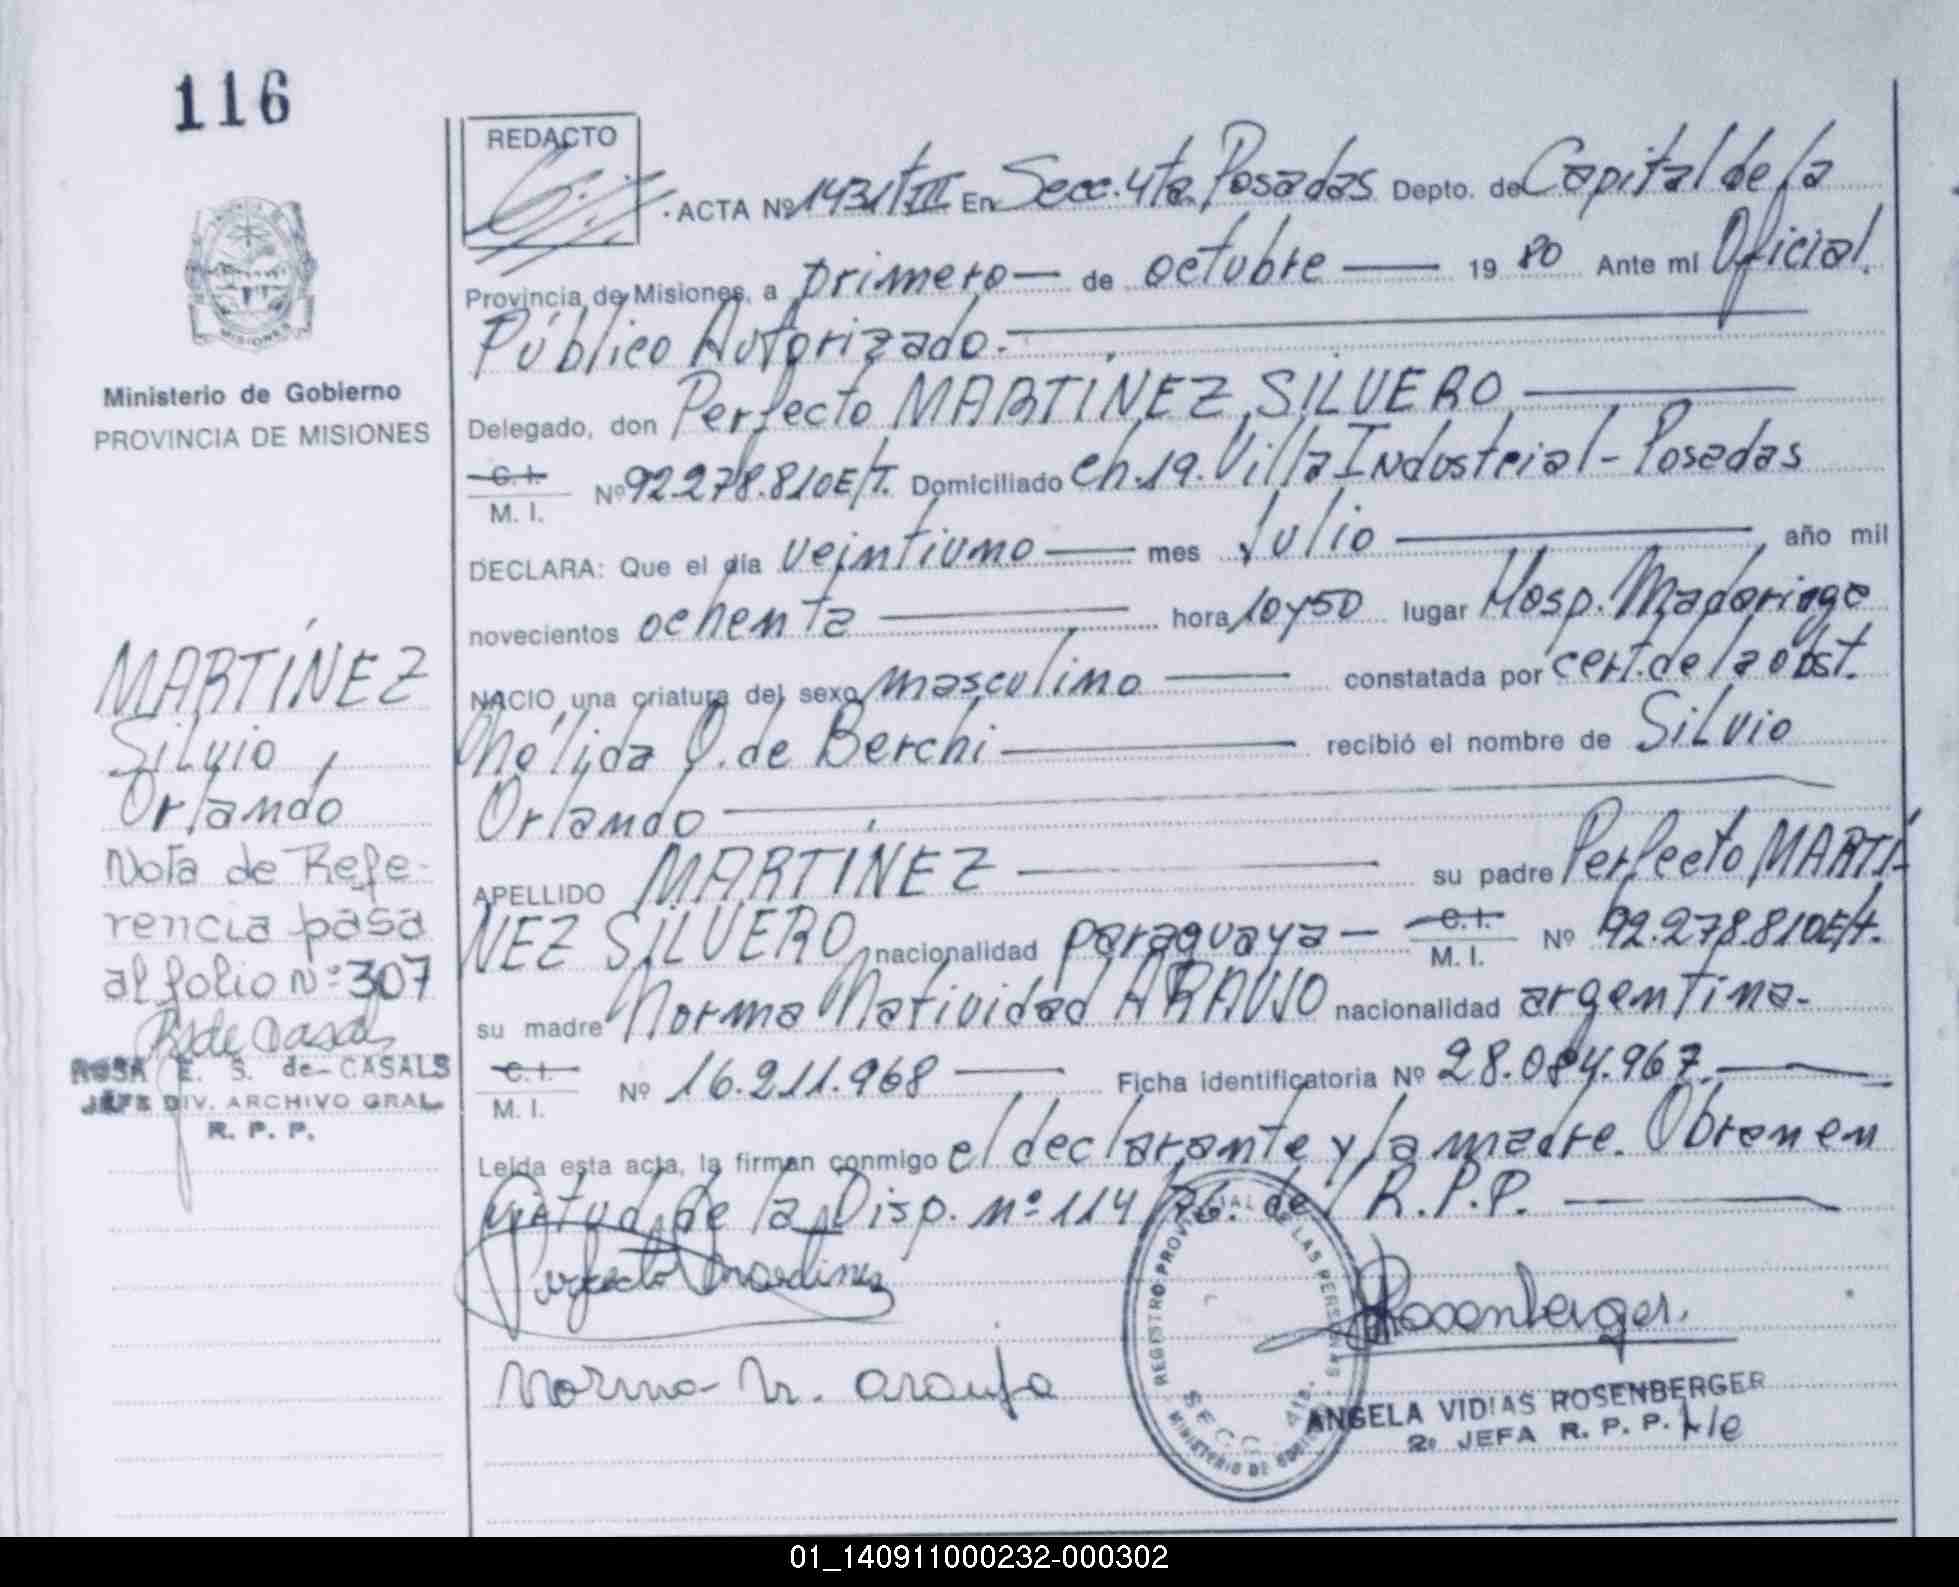 116
REDACTO
ACTA Nº 1431 TIII En Secc. 4ta. Posadas Depto. de Capital de la
Provincia de Misiones, a primero — de octubre — 19 80 Ante mi Oficial
Público Autorizado.-
Delegado, don Perfecto MARTÍNEZ SILVERO
C. I.
M. I. Nº 92.278.810E/T. Domiciliado Ch. 19. Villa Industrial - Posadas
DECLARA: Que el día veintiuno — mes Julio — año mil
novecientos ochenta — hora 10 y 50 lugar Hosp. Madariaga
NACIO una criatura del sexo masculino — constatada por cert. de la obst.
Nélida O. de Berchi — recibió el nombre de Silvio
Orlando —
APELLIDO MARTÍNEZ — su padre Perfecto MARTÍ-
NEZ SILVERO nacionalidad paraguaya — C. I. M. I. Nº 92.278.810E/t.
su madre Norma Natividad ARAUJO nacionalidad argentina.-
C. I.
M. I. Nº 16.211.968 — Ficha identificatoria Nº 28.084.967.-
Leída esta acta, la firman conmigo el declarante y la madre. Obran en
virtud de la Disp. nº 114/76. del R.P.P. —
Perfecto Martinez
Norma N. Araujo
Rosenberger.
ANGELA VIDIAS ROSENBERGER
2º JEFA R. P. P.
REGISTRO PROVINCIAL DE LAS PERSONAS
SECC. 4ta.
MINISTERIO DE GOBIERNO
MISIONES
Ministerio de Gobierno
PROVINCIA DE MISIONES
MARTÍNEZ
Silvio
Orlando
Nota de Refe-
rencia pasa
al folio Nº 307
R S de Casals
ROSA E. S. de CASALS
JEFE DIV. ARCHIVO GRAL.
R. P. P.
01_140911000232-000302